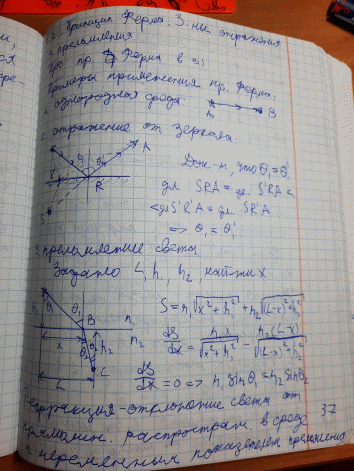 2. Принцип Ферма. З-ны отражения
и преломления.
Примеры применения пр. Ферма.
однородная среда:
A B
отражение от зеркала.
A
R
S'
Док-м, что θ₁=θ₁'
дл. SRA = дл. S'RA <
< дл S'R'A = дл. S'R'A
=> θ₁ = θ₁'
3. преломление света
Задано L, h₁, h₂, найти x
S = n₁√(x²+h₁²) + n₂√((L-x)²+h₂²)
dS/dx = n₁x/√(x²+h₁²) - n₂(L-x)/√((L-x)²+h₂²)
dS/dx = 0 => n₁ sinθ₁ = n₂ sinθ₂
θ₁ B n₁
x n₂ h₂
C
L
Рефракция - отклонение света от
прямолин. распростран. в среде
с переменным показателем преломления
37